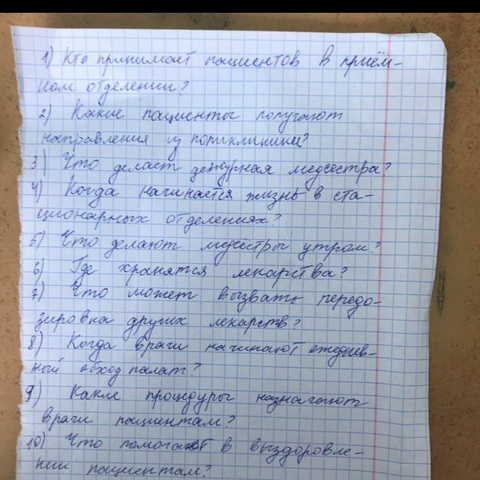 1) Кто принимает пациентов в приём-
ном отделении?
2) Какие пациенты получают
направления из поликлиники?
3) Что делает дежурная медсестра?
4) Когда начинается жизнь в ста-
ционарных отделениях?
5) Что делают медсёстры утром?
6) Где хранятся лекарства?
7) Что может вызвать передо-
зировка других лекарств?
8) Когда врачи начинают ежеднев-
ный обход палат?
9) Какие процедуры назначают
врачи пациентам?
10) Что помогает в выздоровле-
нии пациентам?